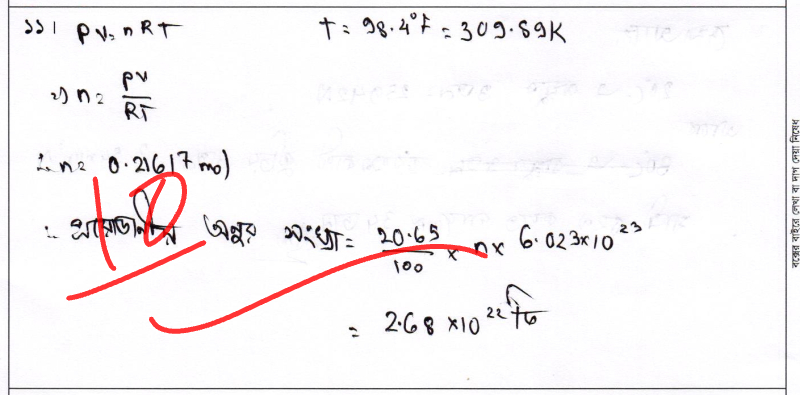 ১১। PV = nRT T = 98.4°F = 309.89K
⇒ n = PV/RT
∴ n = 0.21617 mol
10
∴ প্রয়োজনীয় অনুর সংখ্যা = 20.65/100 × n × 6.023×10²³
= 2.68 ×10²² টি
বক্সের বাইরে লেখা বা দাগ দেয়া নিষেধ